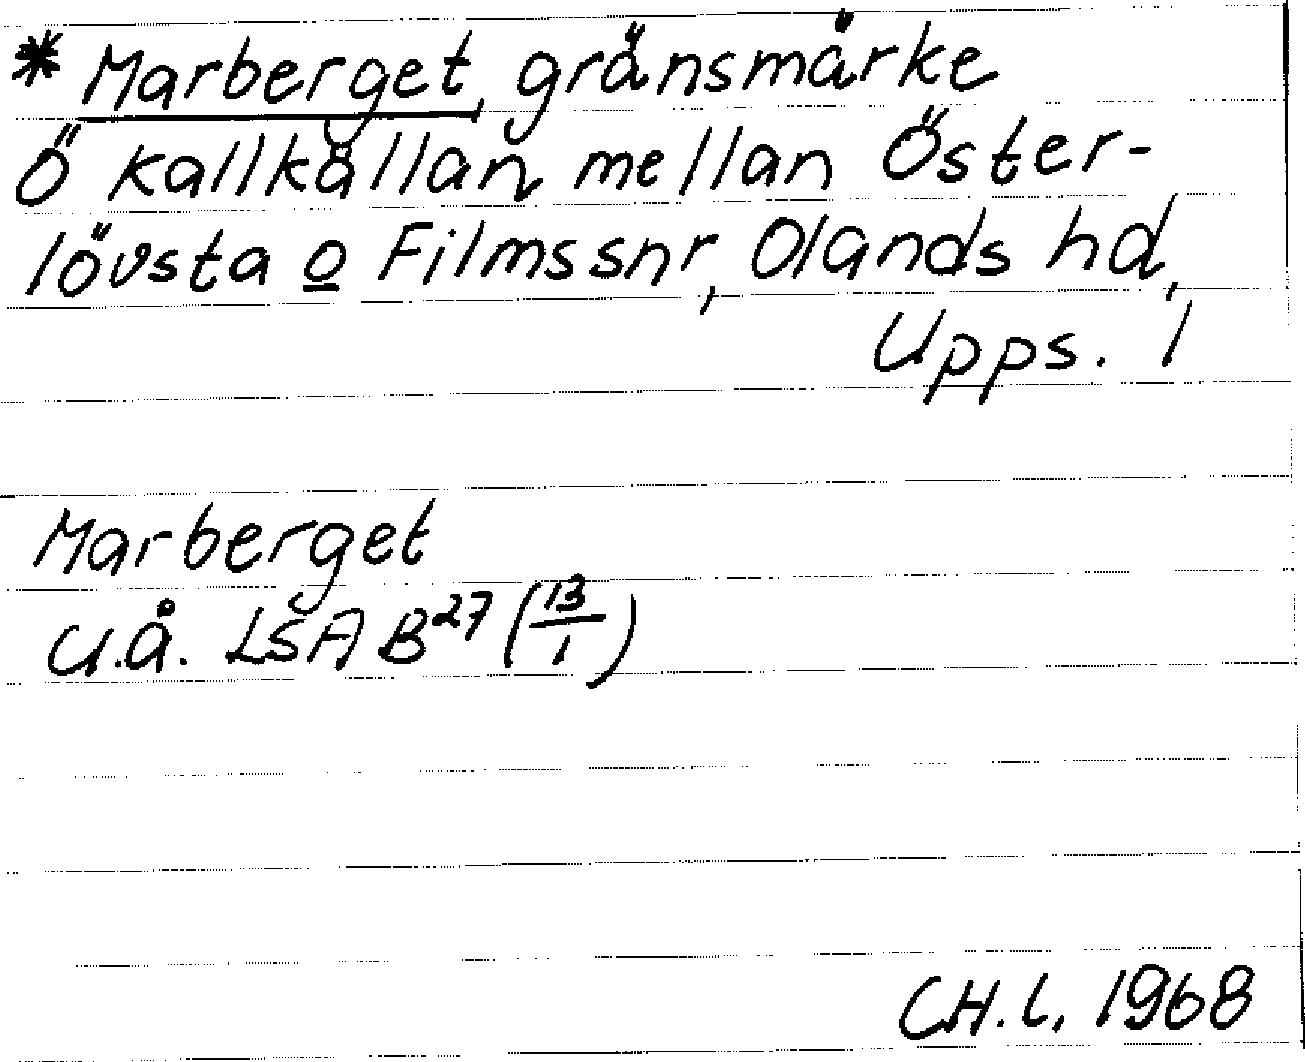 * Marberget, gränsmärke
Ö kallkällan mellan Öster-
lövsta o Filmssnr, Olands hd,
Upps. l
Marberget
u.å. LSA B27 (13/1)
CH.L. 1968